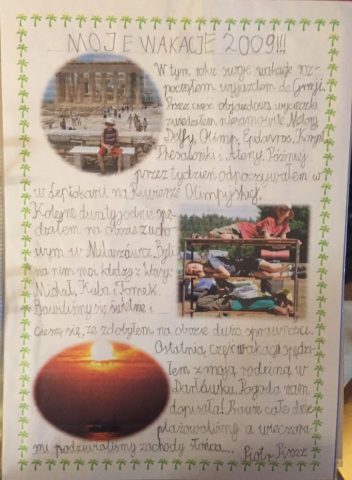 MOJE WAKACJE 2009!!!
W tym roku swoje wakacje roz-
począłem wyjazdem do Grecji.
Przez czas objazdowej wycieczki
zwiedziłem niesamowite Meteory,
Delfy, Olimp, Epidavros, Korynt,
Thesaloniki i Ateny. Później
przez tydzień odpoczywałem w
w Leptokarii na Riwierze Olimpijskiej.
Kolejne dwa tygodnie spę-
dziłem na obozie zucho-
wym w Byli
na nim moi koledzy z klasy:
Michał, Kuba i Tomek.
Bawiliśmy się świetnie i
cieszę się, że zdobyłem na obozie dużo sprawności.
Ostatnią część wakacji spędzi-
łem z moją rodziną w
Darłówku. Pogoda nam
dopisała! Prawie całe dnie
plażowaliśmy a wieczora-
mi podziwialiśmy zachody słońca...
Piotr